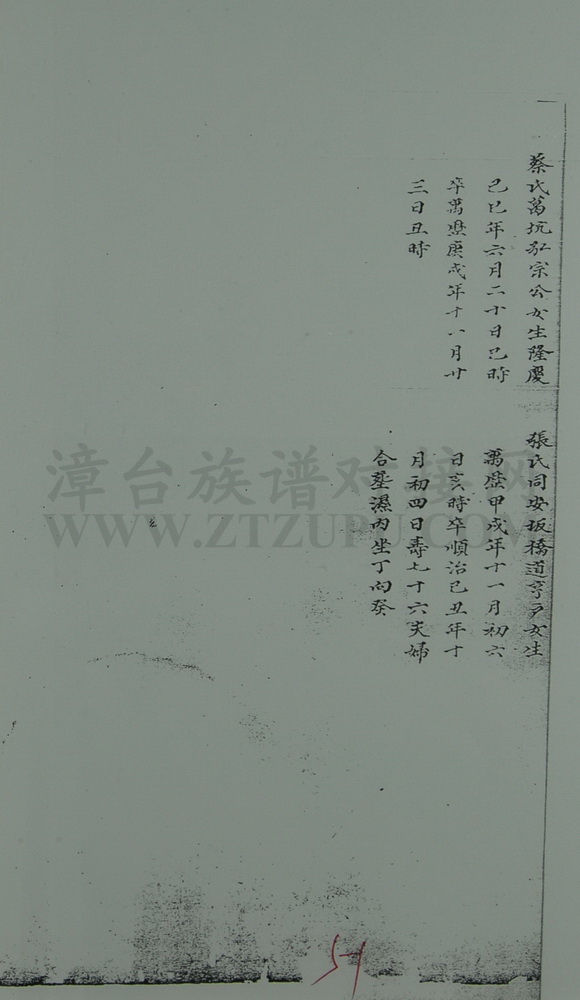 蔡氏萬坑弘宗公女生隆慶
己巳年六月二十日巳時
卒萬曆庚戌年十一月廿
三日丑時
張氏同安坂橋道亨户女生
萬曆甲戌年十一月初六
日亥時卒順治己丑年十
月初四日壽七十六夫婦
合塟濕內坐丁向癸
漳台族谱对接网
WWW.ZTZUPU.COM
51